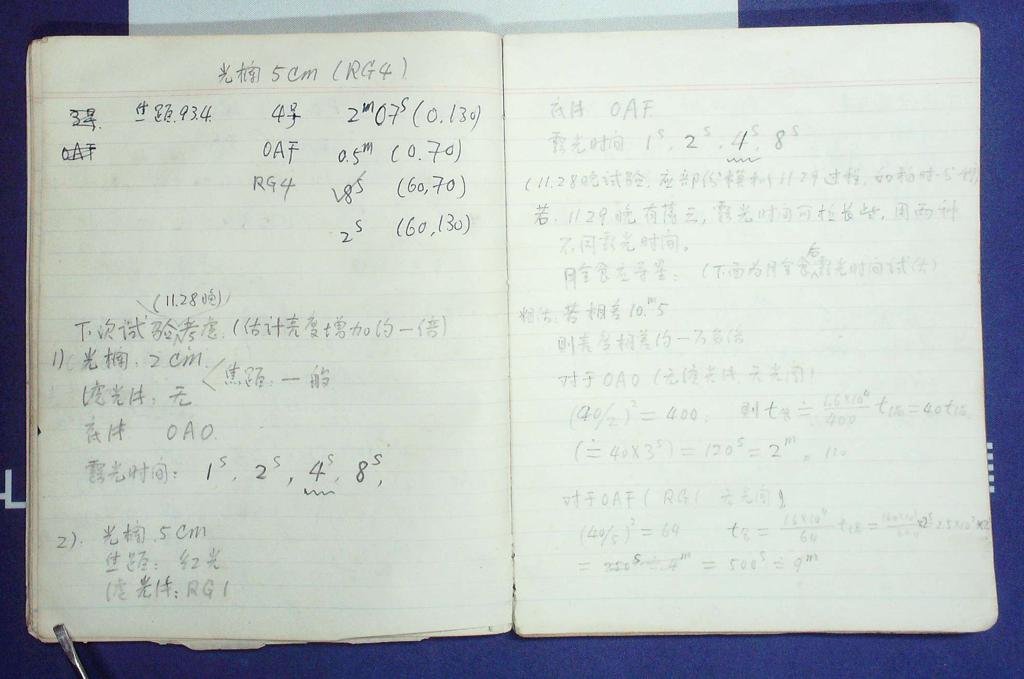 光栏 5cm (RG4)
3号 焦距.93.4 4号 2ᵐ07ˢ (0.130)
OAF OAF 0.5ᵐ (0.70)
RG4 8ˢ (60,70)
2ˢ (60,130)
(11.28晚)
下次试验考虑.(估计亮度增加约一倍)
1) 光栏: 2cm.
焦距: 一般
滤光片: 无
底片 OAO.
露光时间: 1ˢ, 2ˢ, 4ˢ, 8ˢ,
2). 光栏. 5cm
焦距: 红光
滤光片: RG1
底片 OAF.
露光时间 1ˢ, 2ˢ, 4ˢ, 8ˢ
(11.28晚试验, 应部份模拟11.29过程,
若. 11.29晚有薄云, 露光时间可拉长些, 用两种
不同露光时间。
月全食应尽量: (下面为月全食后露光时间试估)
粗估: 若相差10.ᵐ5
则亮度相差约一万多倍
对于OAO (无滤光片.
(40/2)² = 400. 则 t = 1.6×10⁴/400 t = 40t
(≐ 40×3ˢ) = 120ˢ = 2ᵐ,
对于OAF ( RG1
(40/5)² = 64 t = 1.6×10⁴/64 t
= 250ˢ ≐ 4ᵐ = 500ˢ ≐ 9ᵐ